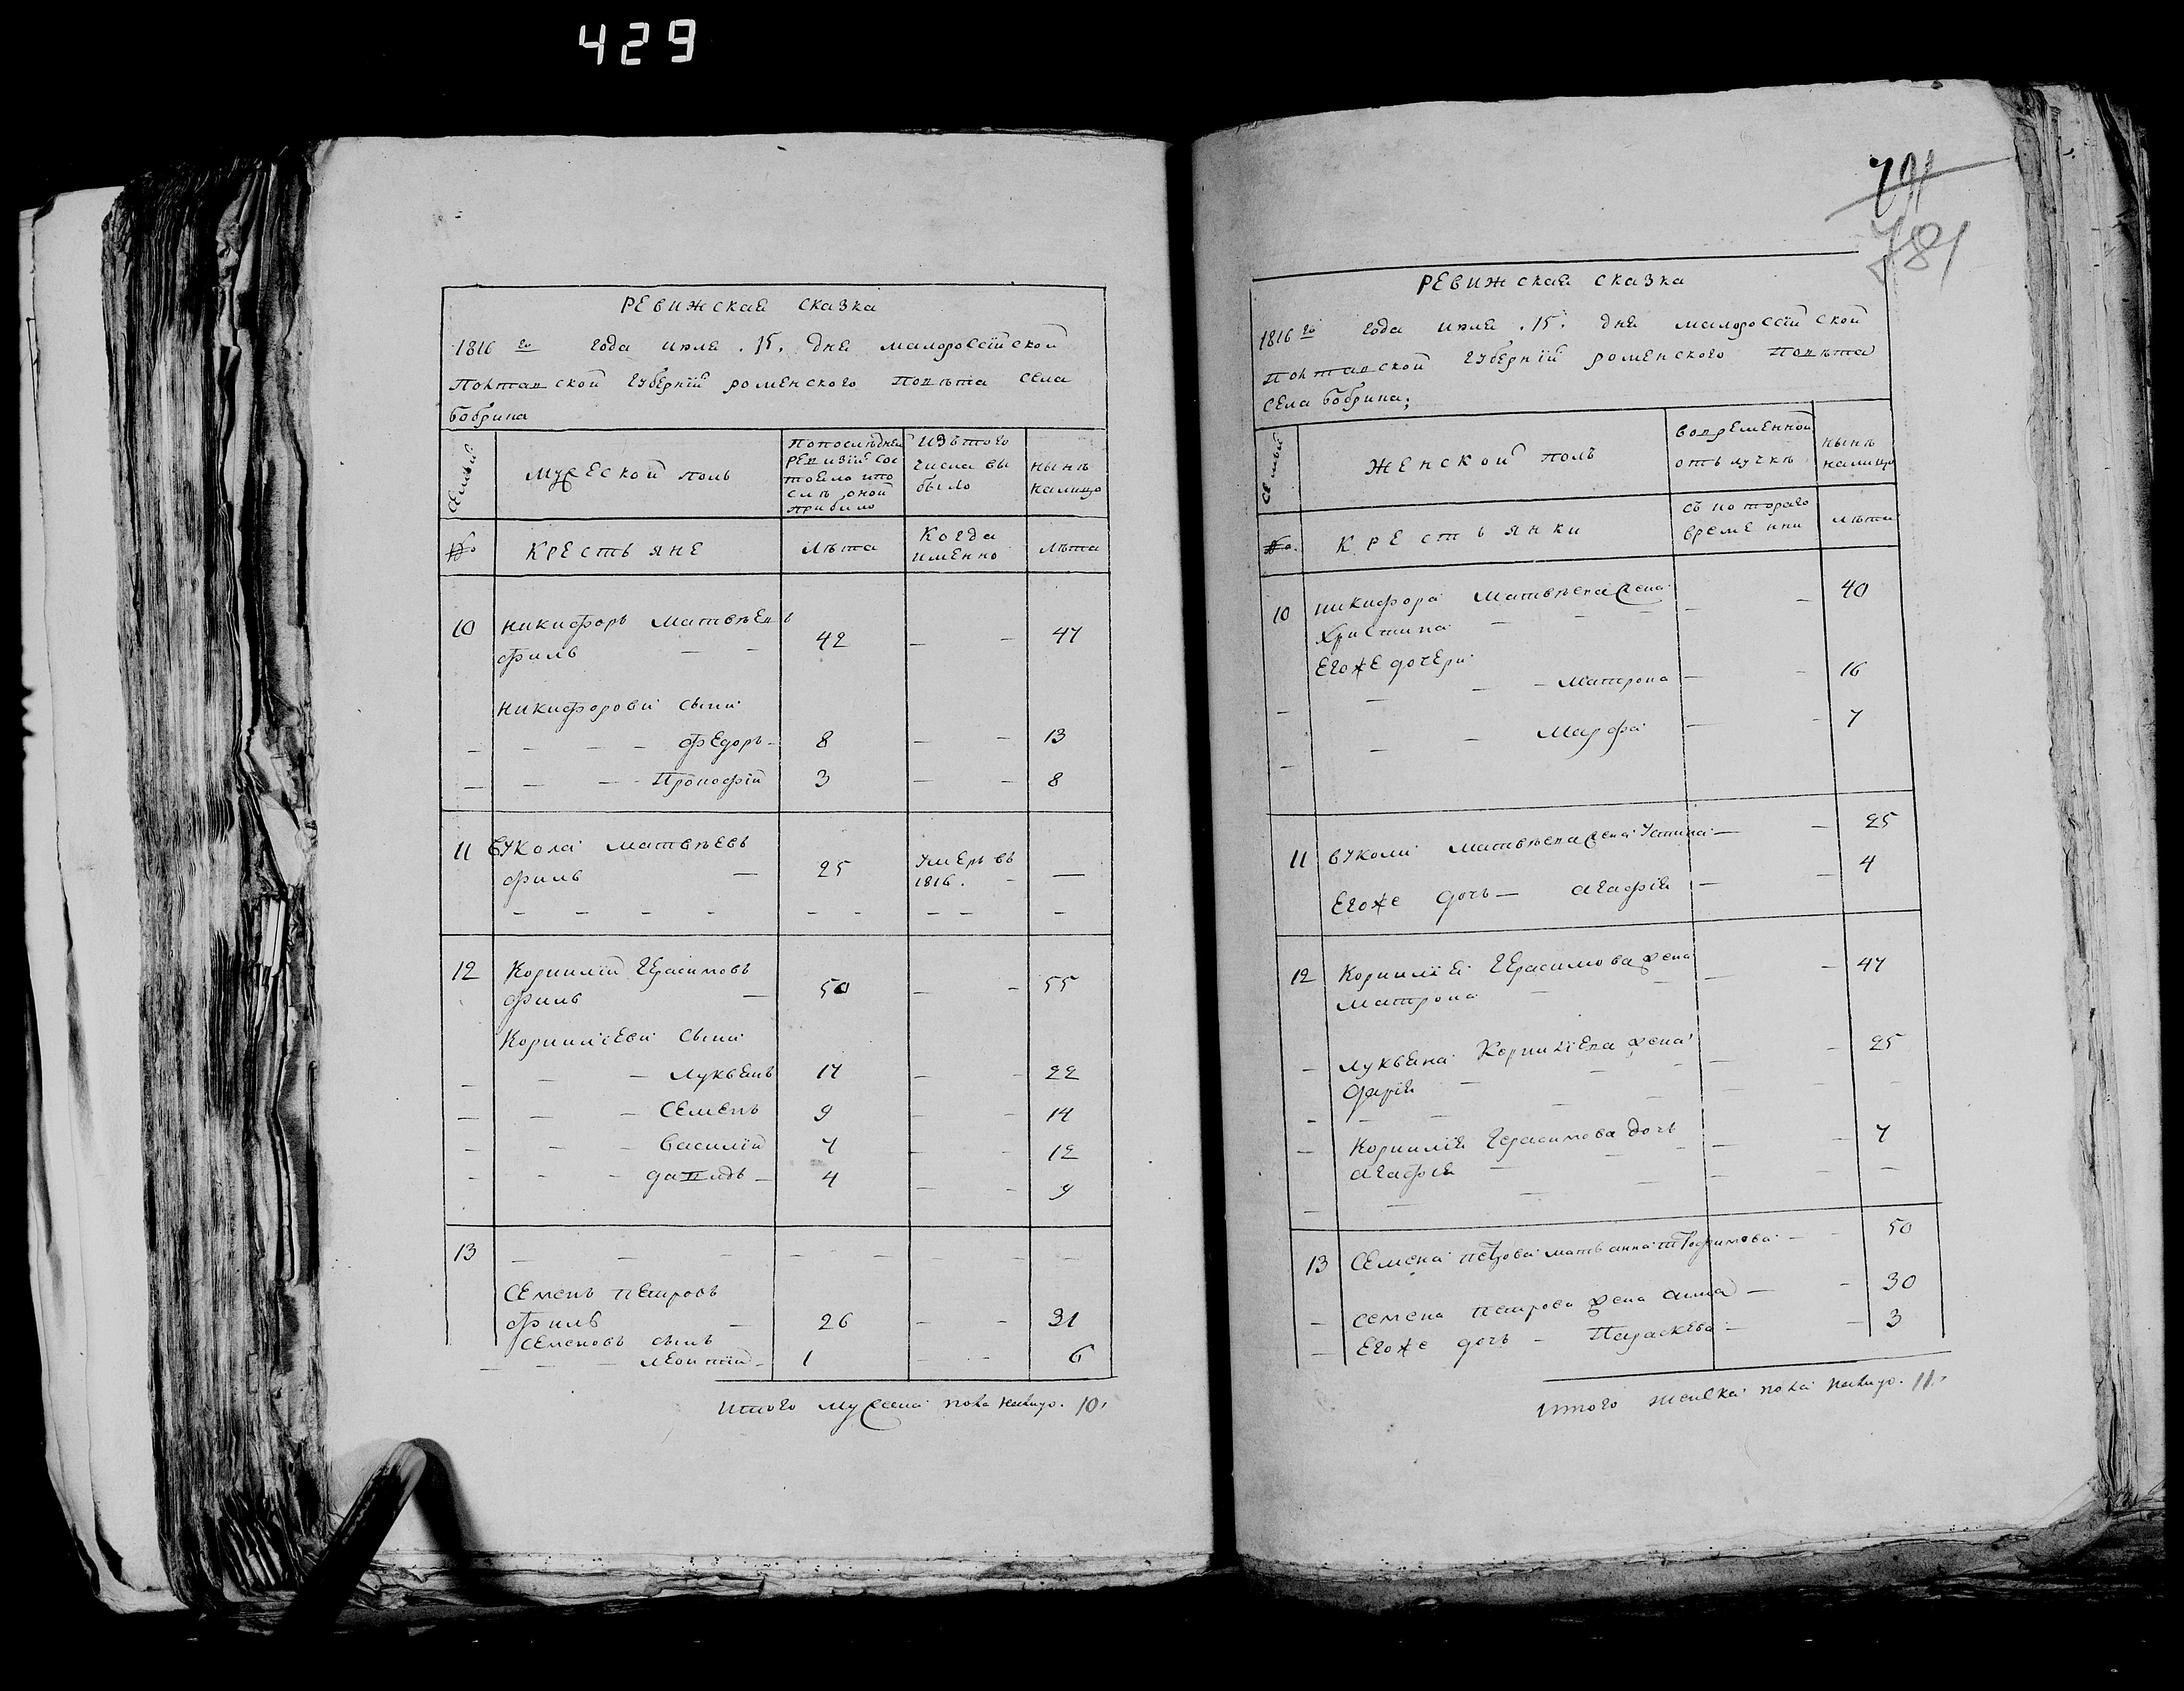 429
РЕВИЖСКАЯ СКАЗКА
1816 го года июля .15. дня малороссійской
Полтавской губерніи роменского повѣта села
бобрика
Семьи
Мужеской полъ
попослѣдней ревизіи состояло ипослѣ оной прибыло
Изътого числа выбыло
нынѣ налицо
№
Крестьяне
лѣта
Когда именно
лѣта
10 никифоръ матвѣевъ
филь — — 42 — — 47
никифорови сыни
— — — — федоръ — 8 — — 13
— — — Прокофій 3 — — 8
11 вукола матвѣевъ
филь — 25 Умеръ въ 1816. — —
12 Корнилій Герасимовъ
филь — 50 — — 55
Корниліеви сыни
— — — лукьянъ 17 — — 22
— — — Семенъ 9 — — 14
— — — василій 7 — — 12
— — — давидъ — 4 — — 9
13 — — — — — — —
Семенъ петровъ
филь — 26 — — 31
Семеновъ сынъ
— — — леонтій — 1 — — 6
Итого мужеска пола налицо. 10.
791
781
РЕВИЖСКАЯ СКАЗКА
1816 го года июля .15. дня малороссійской
Полтавской губерніи роменского повѣта
села бобрика;
Семьи
Женской полъ
вовременной отълучкѣ
нынѣ налицо
№.
Крестьянки
съ которого времени
лѣта
10 никифора матвѣева жена — — 40
Христина — — —
Егоже дочери
— — — — матрона — — 16
— — — марфа — — 7
11 вуколи матвѣева жена Устина — — 25
Егоже дочь — агафія — — 4
12 Корнилія Герасимова жена — — 47
матрона — —
— лукьяна Корниліева жена — — 25
дарія — — —
— Корнилія Герасимова дочь — — 7
агафія — — —
13 Семена петрова мать анна трофимова — — 50
— семена петрова жена анна — — 30
— Егоже дочь — Параскева — — 3
Итого женска пола налицо. 11.